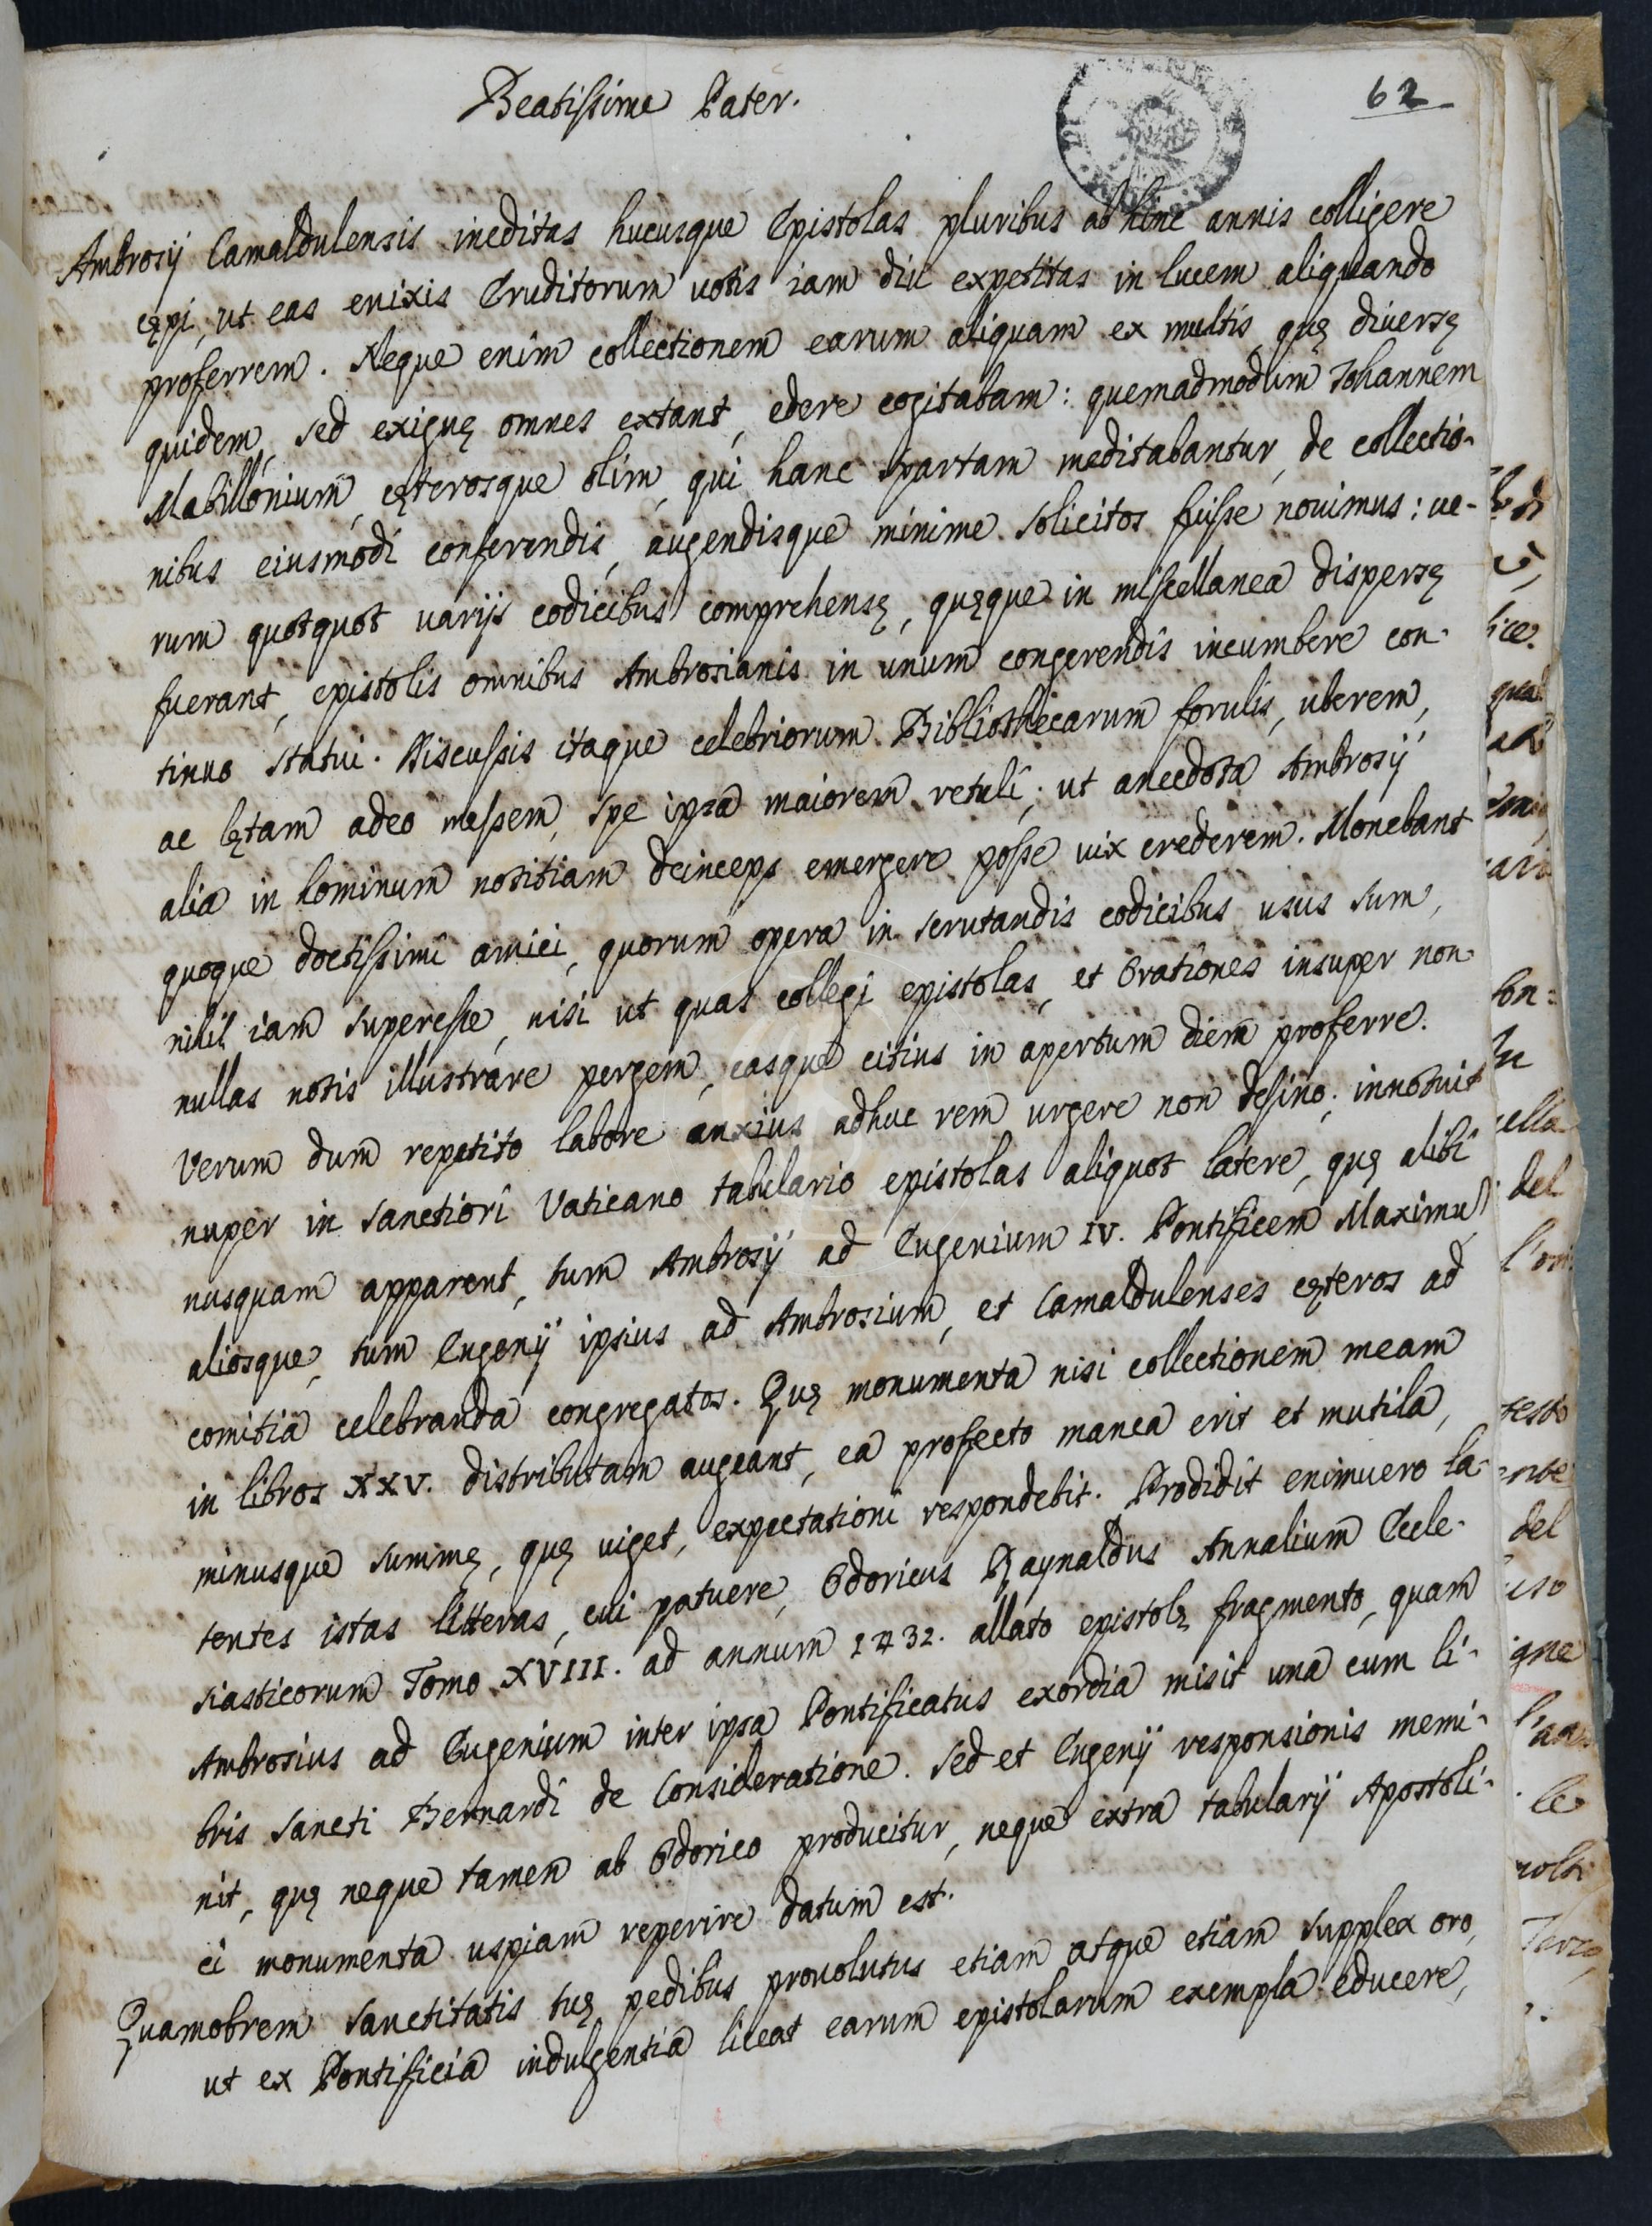 Beatissime Pater.
62
Ambrosij Camaldulensis ineditas hucusque Epistolas pluribus ab hinc annis colligere
cępi, ut eas enixis Eruditorum uotis iam diu expetitas in lucem aliquando
proferrem. Neque enim collectionem earum aliquam ex multis, quę diuersę
quidem, sed exiguę omnes extant, edere cogitabam: quemadmodum Iohannem
Mabillonium, cęterosque olim, qui hanc spartam meditabantur, de collectio-
nibus eiusmodi conferendis, augendisque minime solicitos fuisse nouimus: ue-
rum quotquot uarijs codicibus comprehensę, quęque in miscellanea dispersę
fuerant, epistolis omnibus Ambrosianis in unum congerendis incumbere con-
tinuo statui. Discussis itaque celebriorum Bibliothecarum forulis, uberem,
ac lętam adeo messem, spe ipsa maiorem retuli; ut anecdota Ambrosij
alia in hominum notitiam deinceps emergere posse uix crederem. Monebant
quoque doctissimi amici, quorum opera in scrutandis codicibus usus sum,
nihil iam superesse, nisi ut quas collegi epistolas, et Orationes insuper non-
nullas notis illustrare pergem, easque citius in apertum diem proferre.
Verum dum repetito labore anxius adhuc rem urgere non desino; innotuit
nuper in sanctiori Vaticano tabulario epistolas aliquot latere, quę alibi
nusquam apparent, tum Ambrosij ad Eugenium IV. Pontificem Maximū
aliosque, tum Eugenij ipsius ad Ambrosium, et Camaldulenses cęteros ad
comitia celebranda congregatos. Quę monumenta nisi collectionem meam
in libros XXV. distributam augeant, ea profecto manca erit et mutila,
minusque summę, quę uiget, expectationi respondebit. Prodidit enimuero la-
tentes istas litteras, cui patuere, Odoricus Raynaldus Annalium Eccle-
siasticorum Tomo XVIII. ad annum 1432. allato epistolę fragmento, quam
Ambrosius ad Eugenium inter ipsa Pontificatus exordia misit una cum li-
bris Sancti Bernardi de Consideratione. Sed et Eugenij responsionis memi-
nit, quę neque tamen ab Odorico producitur, neque extra tabularij Apostoli-
ci monumenta uspiam reperire datum est.
Quamobrem Sanctitatis tuę pedibus prouolutus etiam atque etiam supplex oro,
ut ex Pontificia indulgentia liceat earum epistolarum exempla educere,